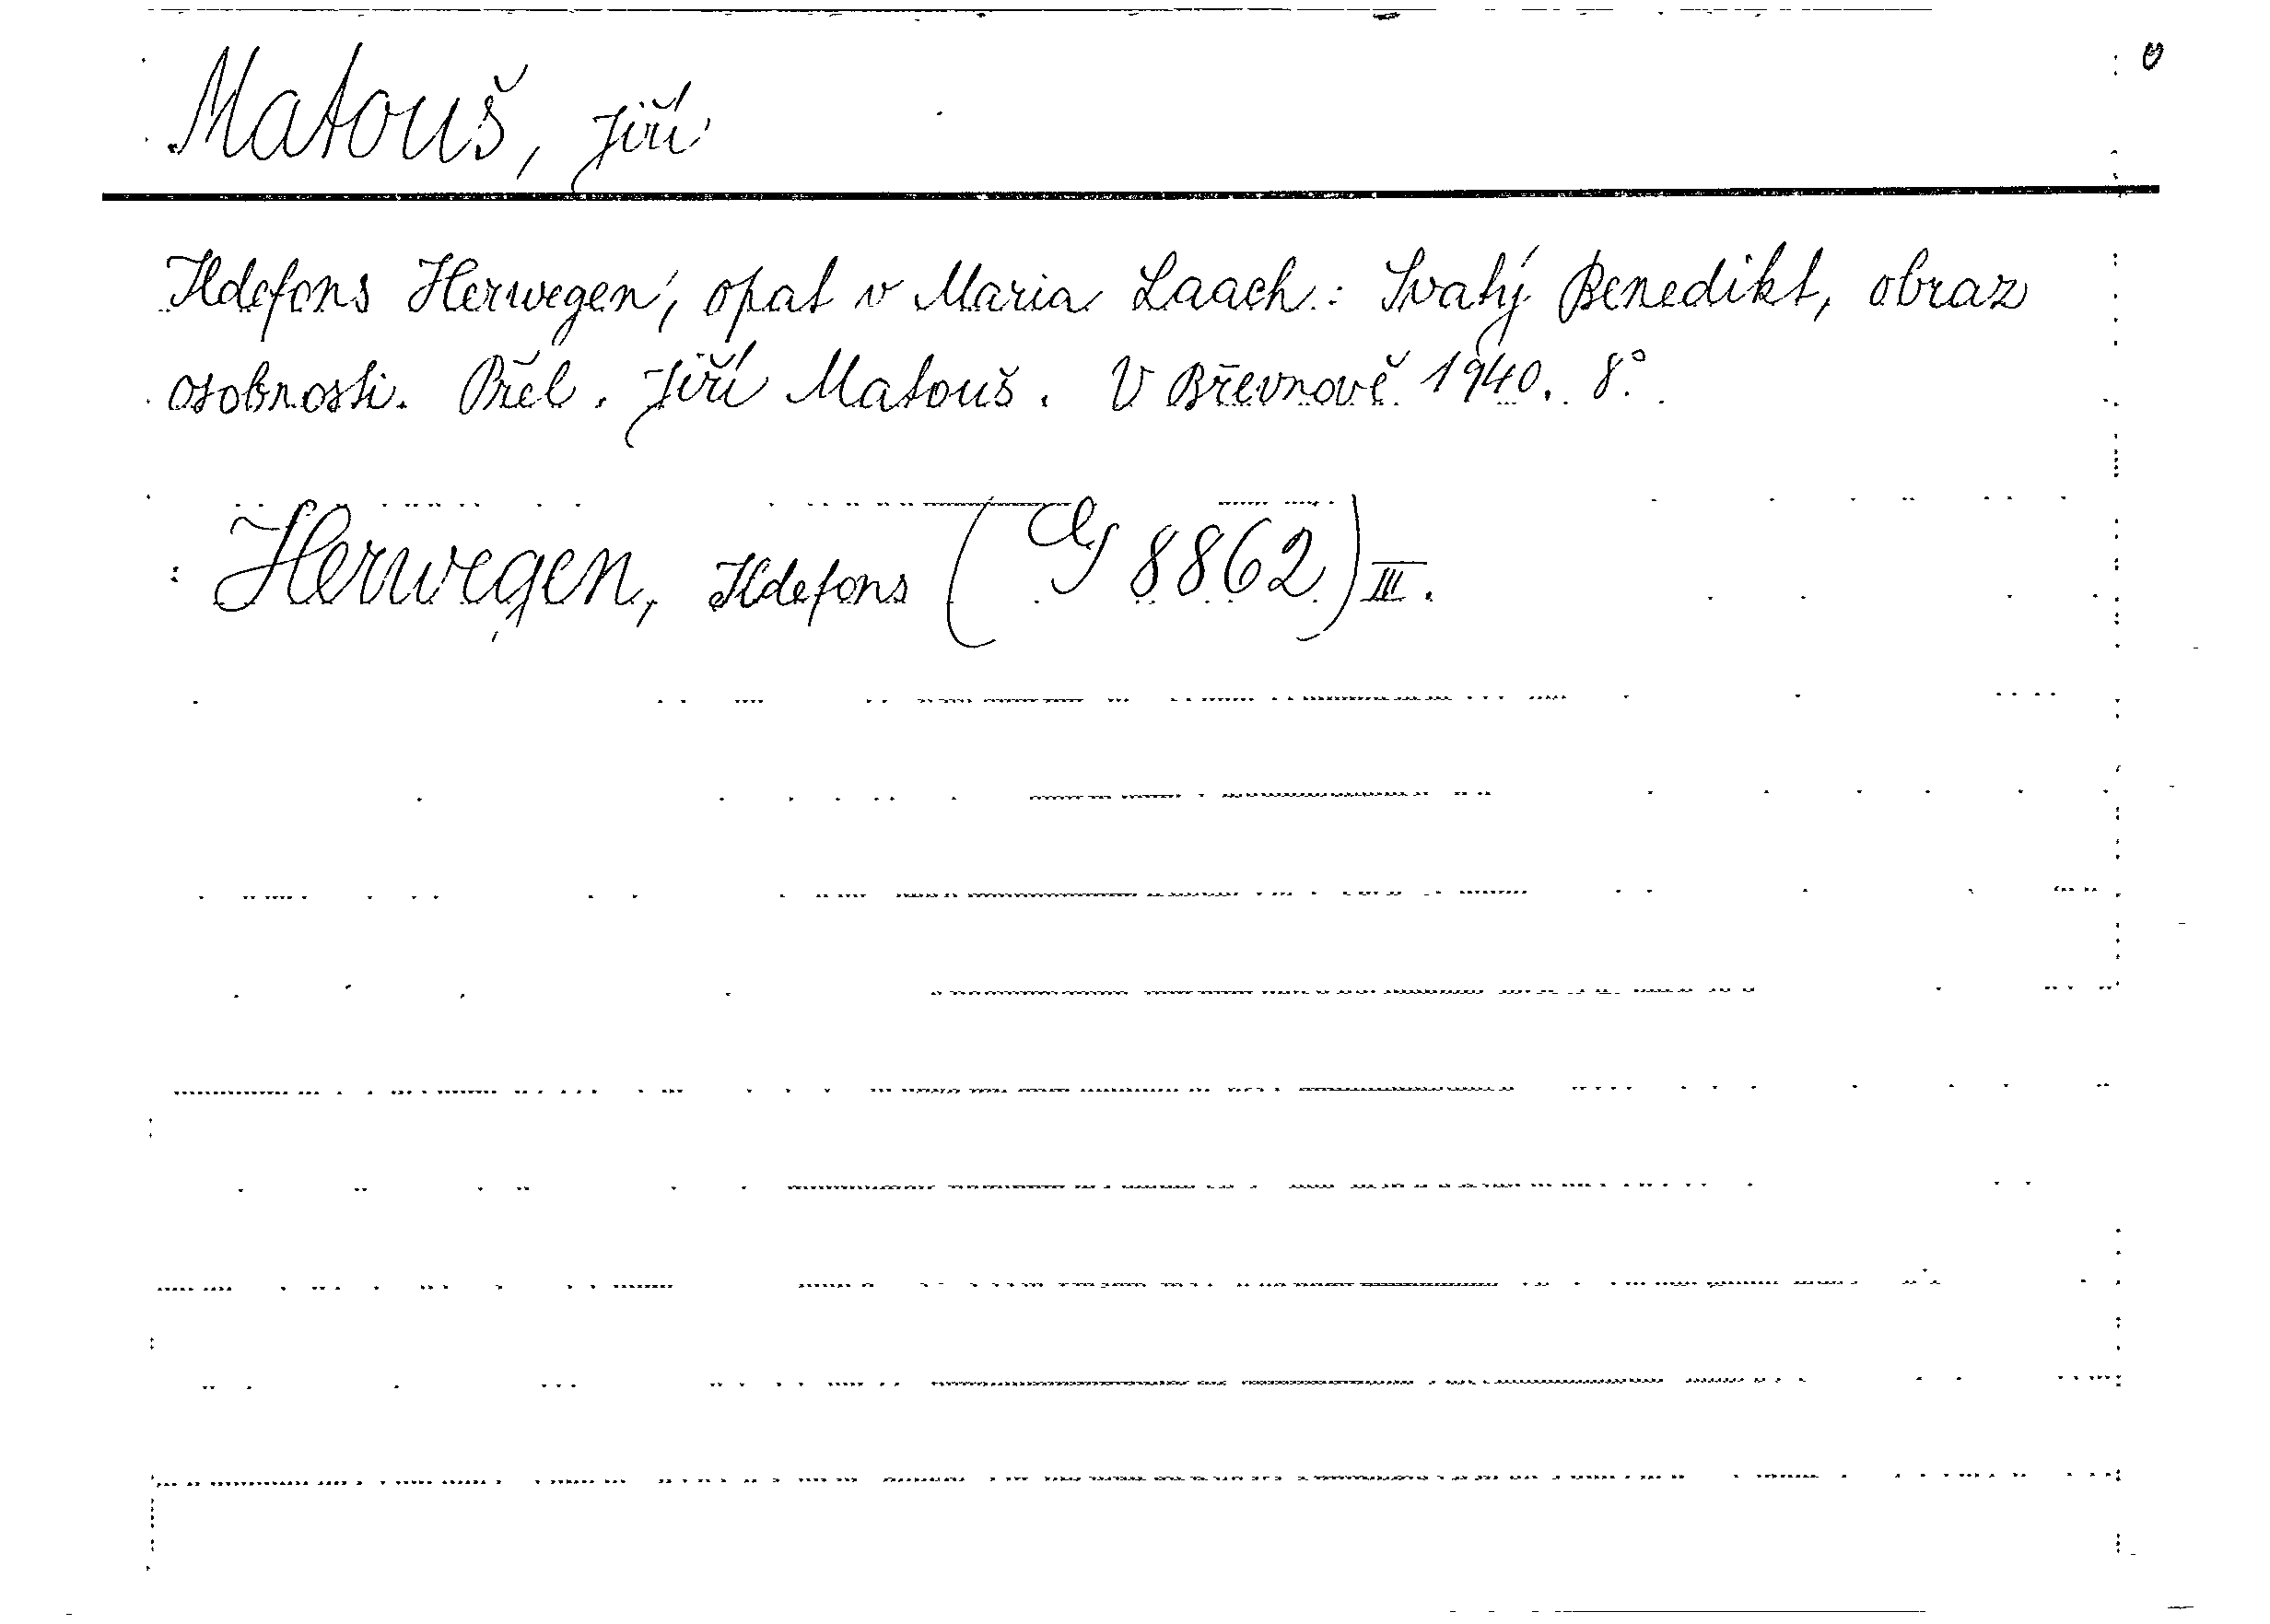 Matouš, Jiří
Ildefons Herwegen, opat v Maria Laach: Svatý Benedikt, obraz
osobnosti. Přel. Jiří Matouš. V Břevnově 1940. 8°.
Herwegen, Ildefons (G 8862) III.